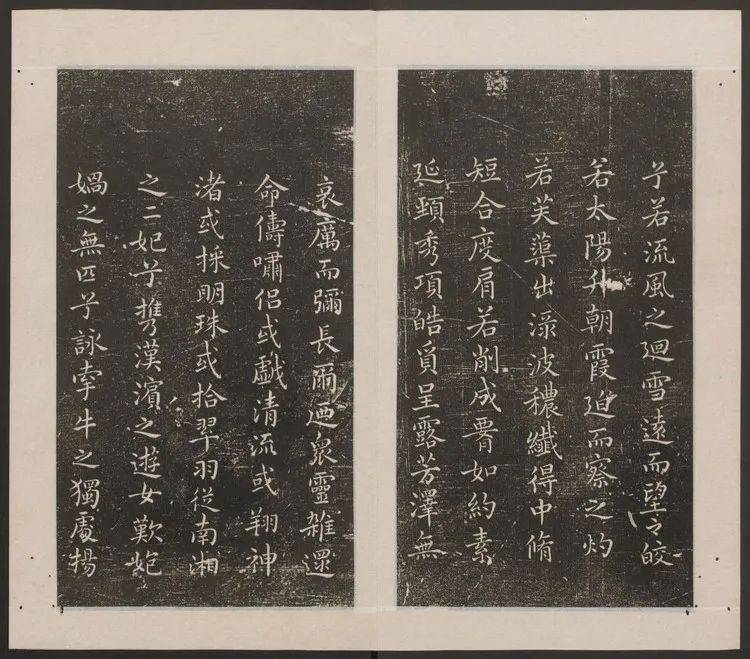 兮若流風之廻雪遠而望之皎
若太陽升朝霞迫而察之灼
若芙蕖出淥波穠纖得中脩
短合度肩若削成腰如約素
延頸秀項皓質呈露芳澤無
哀厲而彌長爾迺衆靈雜遝
命儔嘯侶或戲清流或翔神
渚或採明珠或拾翠羽從南湘
之二妃兮携漢濱之遊女歎匏
媧之無匹兮詠牽牛之獨處揚